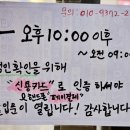 문의: 010-9392-2
오후10:00 이후
~오전 09:00
인확인을 위해
"신용카드"로 인증 하셔야
문이 열립니다! 감사합니다